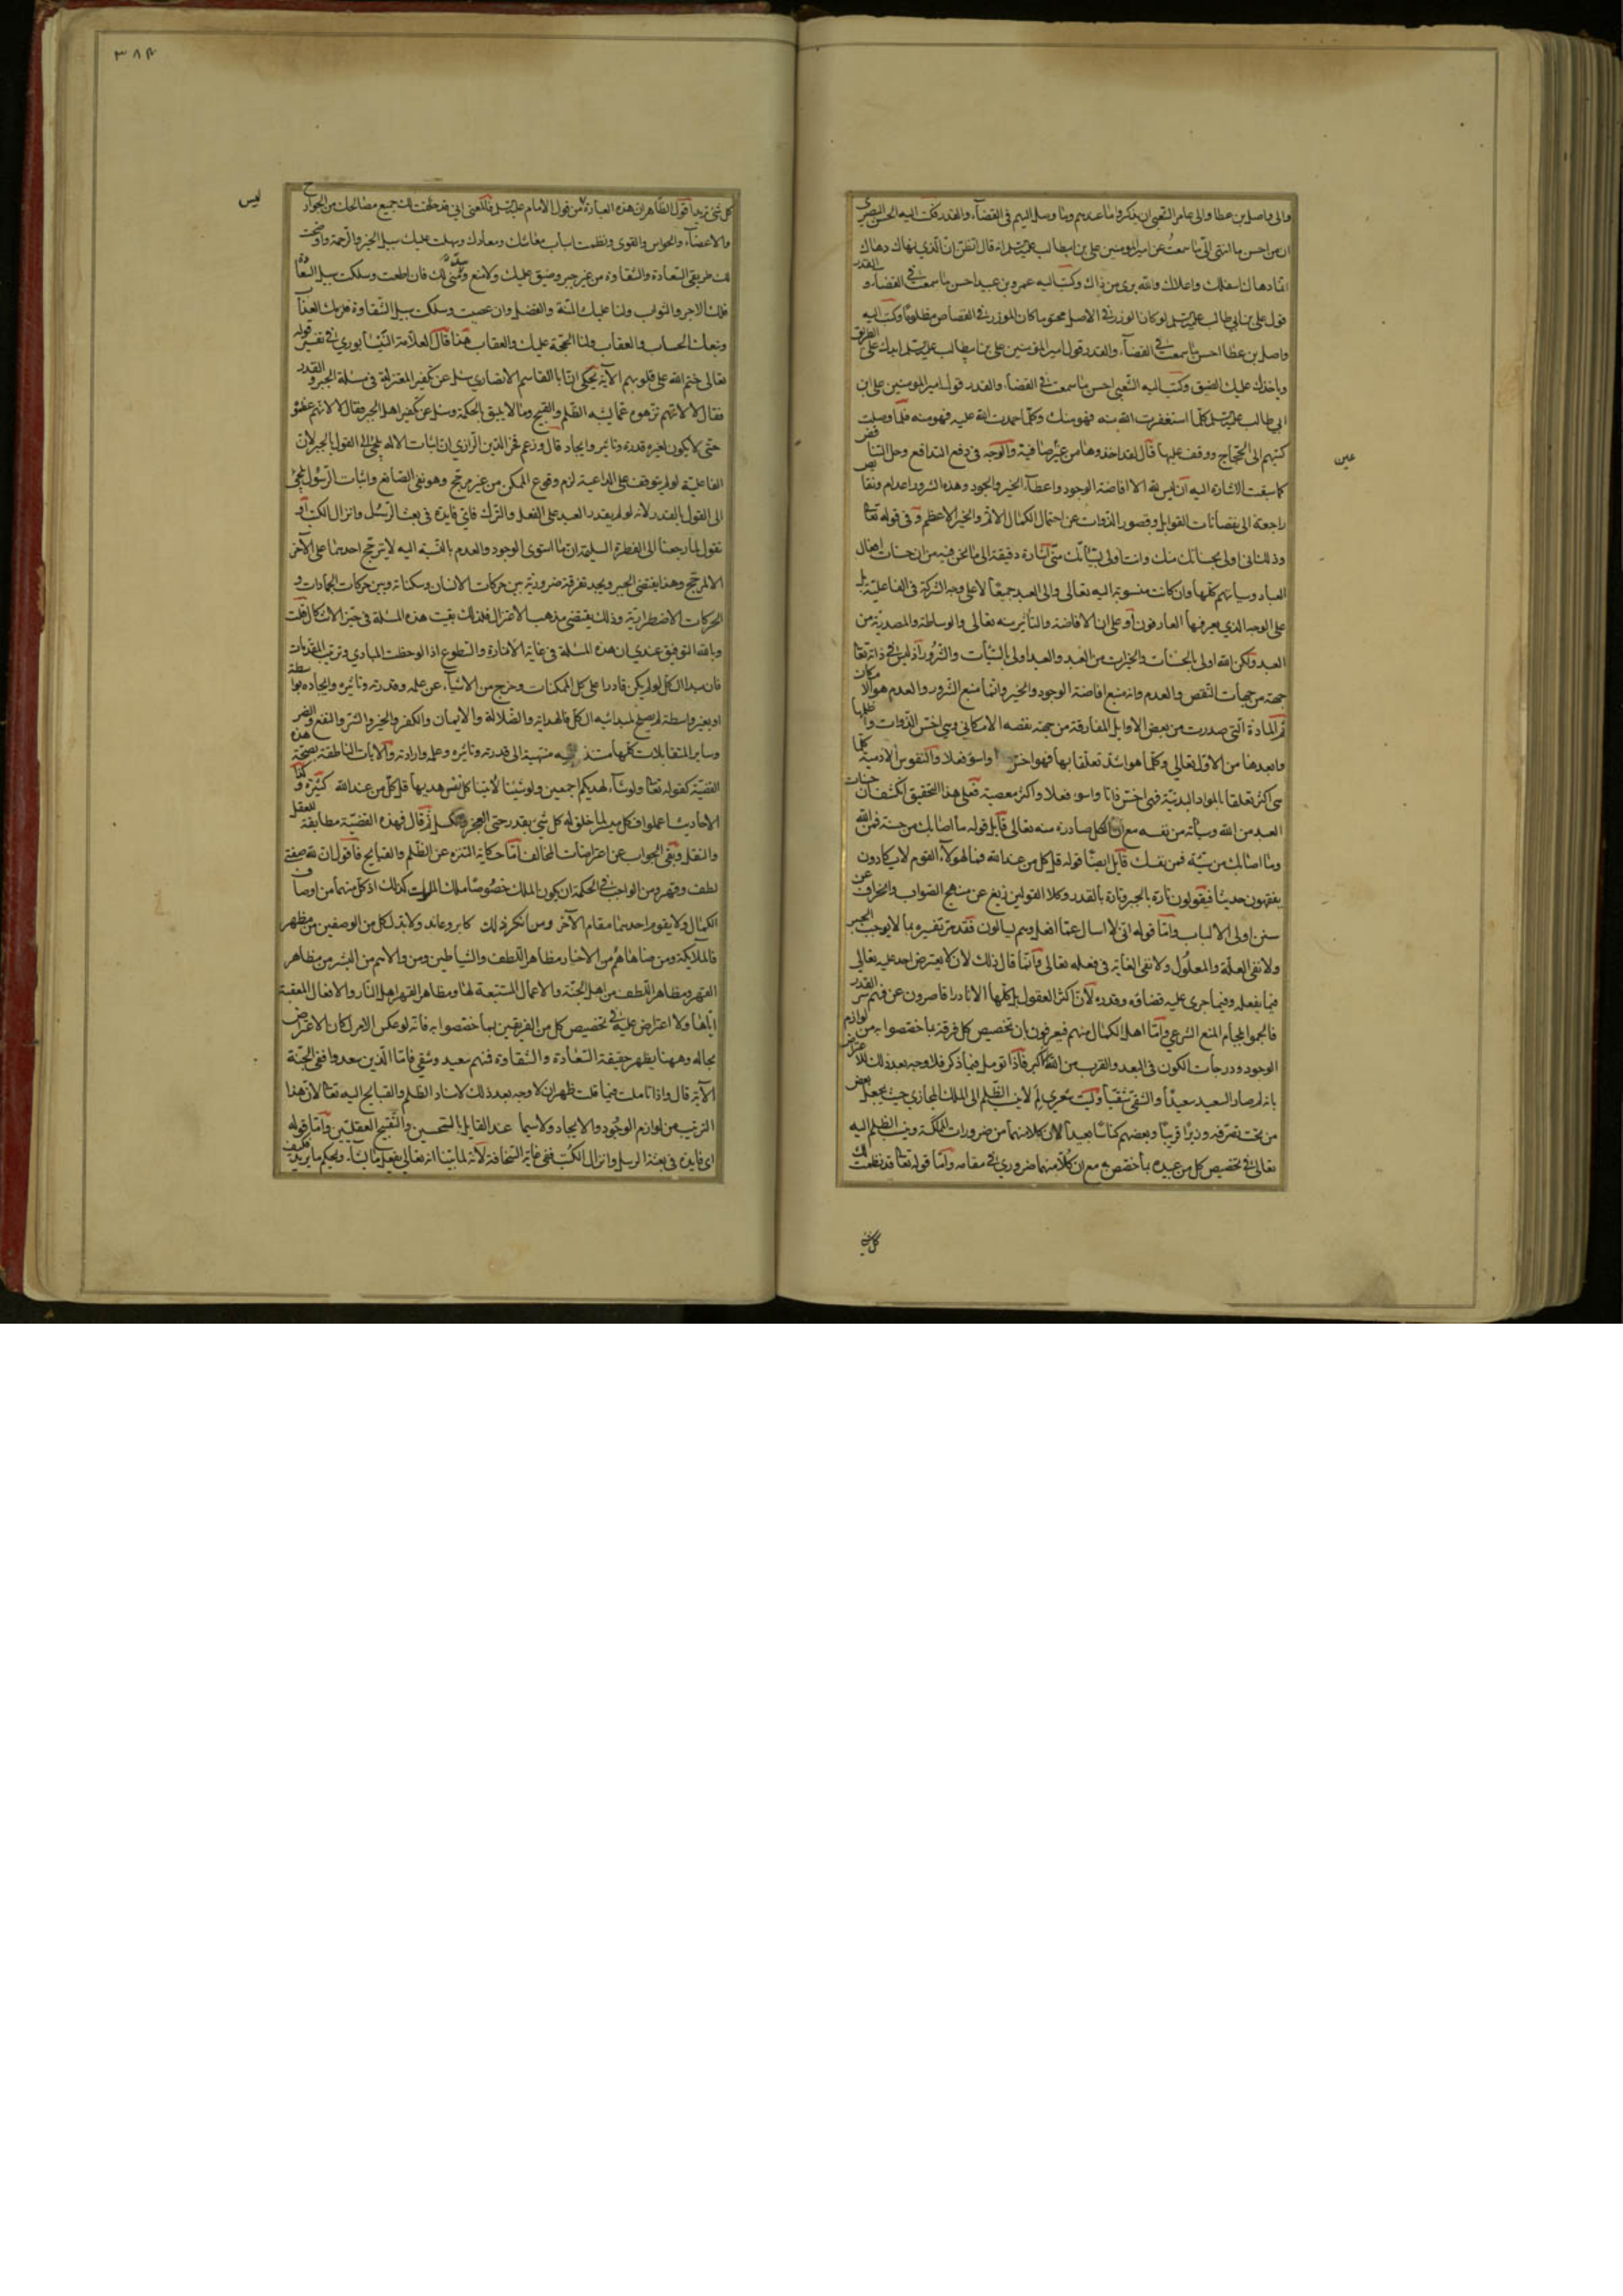 والى واصل بن عطا والى عامر الشعبي ان يذكروا ما عندهم وما وصل اليهم في القضآء والقدر فكتب اليه الحسن البصري
ان من احسن ما انتهى الىّ ما سمعتُ عن امير المومنين على بن ابيطالب عليه السلم انه قال اتظن ان الذي نهاك دهاك
انما دهاك اسفلك واعلاك والله برى من ذاك وكتب اليه عمرو بن عبيد احسن ما سمعت في القضآء والقدر
قول على بن ابي طالب عليه السلم لو كان الوزر في الاصل محتوما كان الموزر في القصاص مظلوما وكتب اليه
واصل بن عطا احسن ما سمعت في القضآء والقدر قول امير المؤمنين على بن ابيطالب عليه السلم ايدلك على الطريق
وياخذ عليك المضيق وكتب اليه الشعبى احسن ما سمعت في القضاء والقدر قول امير المومنين على بن
ابي طالب عليه السلم كلما استغفرت الله منه فهو منك وكلما احمدت الله عليه فهو منه فلما وصلت
كتبهم الى الحجاج ووقف عليها قال لقد اخذوها من عين صافية والوجه في دفع التدافع وحل التناقض
كما سبقت الاشارة اليه ان ليس لله الا افاضة الوجود واعطآء الخير والجود وهذه الشرور اعدام ونقايص
راجعة الى نقصانات القوابل وقصور الذوات عن احتمال الكمال الاتم والخير الاعظم وفي قوله تعالى
وذلك انى اولى بحسناتك منك وانت اولى بسياتك منّى اشارة دقيقة الى ما نحن فيه من ان حسنات افعال
العباد وسياتهم كلها وان كانت منسوبة اليه تعالى والى العبد جميعًا لا على وجه الشركة في الفاعلية بل
على الوجه الذي يعرفها العارفون أو على ان الافاضة والتأثير منه تعالى والوساطة والمصدرية من
العبد ولكن الله اولى بالحسنات والخيرات من العبد والعبد اولى بالسيأت والشرور اذ ليس في ذاته تعالى
جهة من جهات النقص والعدم وانه منبع افاضة الوجود والخير وانما منبع الشرور والعدم هو الامكان
ثم المادة التي صدرت من بعض الاوايل المفارقة من جهة نقصه الامكاني وهي اخس الذوات واظلمها
وابعدها من الاول تعالي وكلما هو اشد تعلقا بها فهو اخس واسوء فعلا والنفوس الادمية كلما
هى اكثر تعلقا بالمواد البدنية فهى اخس ذاتا واسوء فعلا واكثر معصية فعلى هذا التحقيق انكشف ان حسنات
العبد من الله وسيأته من نفسه مع ان الكل صادرة منه تعالى قابل قوله ما اصابك من حسنة فمن الله
وما اصابك من سيئة فمن نفسك قابل ايضًا قوله قل كل من عند الله فما لهولآء القوم لا يكادون
يفقهون حديثا فيقولون تارة بالجبر وتارة بالقدر وكلا القولين زيغ عن منهج الصواب وانحراف عن
سنن اولى الالباب وامّا قوله انى لا اسال عما افعل وهم يسالون فقد مر تفسيره بما لا يوجب الجبر
ولا نفى العلة والمعلُول ولا نفى الغاية في فعله تعالى وانما قال ذلك لان لا يعترض احد عليه تعالى
فيما يفعله وفيما جرى عليه قضاؤه وقدره لأن اكثر العقول بل كلها الا نادرا قاصرون عن فهم سر القدر
فالجموا بلجام المنع الشرعي وامّا اهل الكمال منهم فيعرفون بان تخصيص كل فرقة بما خصصوا به من لوازم
الوجود ودرجات الكون في البعد والقرب من الله اكبر فاذا تومل فيما ذكر فلا وجه بعد ذلك للاعتراض
بانه لم صار السعيد سعيدًا والشقى شقيًا وليت شعري لم لا ينسب الظلم الى الملك المجازي حيث يجعل بعض
من تحت تصرفه وزيرًا قريبا وبعضهم كناسًا بعيدا لان كلا منهما من ضرورات المملكة وينسب الظلم اليه
تعالى في تخصيص كل من عبيده بما خصص به مع ان كلا منهما ضروري في مقامه وامّا قوله تعالى قد نظمت لك
كل شئ
عين
٣٨٤
ليس
كل شئ تريد اقول الظاهر ان هذه العبارة من قول الامام عليه السلم فالمعنى اني قد خلقت لك جميع مصالحك من الجوارح
والاعضآء والحواس والقوى ونظمت اسباب معاشك ومعادك وسهلت عليك سبيل الخير والرحمة واوضحت
لك طريقى السعادة والشقاوة من غير جبر وضيق عليك ولا منع وسد منى لك فان اطعت وسلكت سبيل السعادة
فلك الاجر والثواب ولنا عليك المنة والفضل وان عصيت وسلكت سبيل الشقاوة فلك العذاب
وتبعك الحساب والعقاب ولنا الحجة عليك والعقاب هذا قال العلامة النيشابوري في تفسير قوله
تعالى ختم الله على قلوبهم الآية يحكى ان ابا القاسم الانصاري سئل عن تكفير المعتزلة في مسئلة الجبر والقدر
فقال لا لانهم نزهوه عما يشبه الظلم والقبيح وما لا يليق بالحكمة وسئل عن تكفير اهل الجبر فقال لا لانهم عظموه
حتى لا يكون لغيره قدرة وتاثير وايجاد قال وزعم فخر الدين الرازي ان اثبات الاله يلجئ الى القول بالجبر لان
الفاعلية لو لم يتوقف على الداعية لزم وقوع الممكن من غير مرجح وهو نفى الصانع واثبات الرسول يلجئ
الى القول بالقدر لانه لو لم يقدر العبد على الفعل والترك فاى فايدة في بعث الرسل وانزال الكتب او
نقول لما رجعنا الى الفطرة السليمة ان ما استوى الوجود والعدم بالنسبة اليه لا يترجح احدهما على الآخر
الا لمرجح وهذا يقتضى الجبر ويجد تفرقة ضرورية بين حركات الانسان وسكناته وبين حركات الجمادات و
الحركات الاضطرارية وذلك يقتضى مذهب الاعتزال فلذلك بقيت هذه المسئلة في حيز الاشكال قلت
وبالله التوفيق عندي ان هذه المسئلة في غاية الانارة والسطوع اذا لوحظت المبادي وترتب المقدمات
فان مبدا الكل لو لم يكن قادرا على كل الممكنات وخرج من الاشيآء عن علمه وقدرته وتاثيره وايجاده بواسطة
او بغير واسطة لم يصلح لمبدائيه الكل فالهداية والضلالة والايمان والكفر والخير والشر والنفع والضر
وساير المتقابلات كلها منتهية الى قدرته وتاثيره وعلمه وارادته والايات الناطقة بصحة هذه
القضية كقوله تعالى ولو شآء لهديكم اجمعين ولو شئنا لاتينا كل نفس هديها قل كل من عند الله كثيرة وكذا
الاحاديث اعملوا فكل ميسر لما خلق له كل شئ بقدر حتى العجز والكسل ثم قال فهذه القضية مطابقة للعقل
والنقل وبقى الجواب عن اعتراضات المخالف امّا حكاية التنزه عن الظلم والقبايح فاقول ان لله صفتى
لطف وقهر ومن الواجب في الحكمة ان يكون الملك خصوصًا ملك الملوك كذلك اذ كل منهما من اوصاف
الكمال ولا يقوم احدهما مقام الآخر ومن انكر ذلك كابر وعاند ولا بد لكل من الوصفين من مظهر
فالملايكة ومن ضاهاهم من الاخيار مظاهر اللطف والشياطين ومن والاهم من البشر من مظاهر
القهر ومظاهر اللطف من اهل الجنة والاعمال المستتبعة لها ومظاهر القهر اهل النار والافعال المعقبة
اياها ولا اعتراض عليه في تخصيص كل من الفريقين بما خصصوا به فانه لو عكس الامر لكان الاعتراض
بحاله وههنا يظهر حقيقة السعادة والشقاوة فمنهم سعيد وشقى فاما الذين سعدوا ففى الجنة
الآية قال واذا تاملت فيما قلت ظهر ان لا وجه بعد ذلك لاسناد الظلم والقبايح اليه تعالى لان هذا
الترتيب من لوازم الوجود والايجاد ولا سيما عند القايل بالتحسين والتقبيح العقليين وامّا قوله
اى فايدة في بعثة الرسل وانزال الكتب ففى غاية السخافة لانه لما بينا انه تعالى يفعل ما يشآء ويحكم ما يريد فكيف